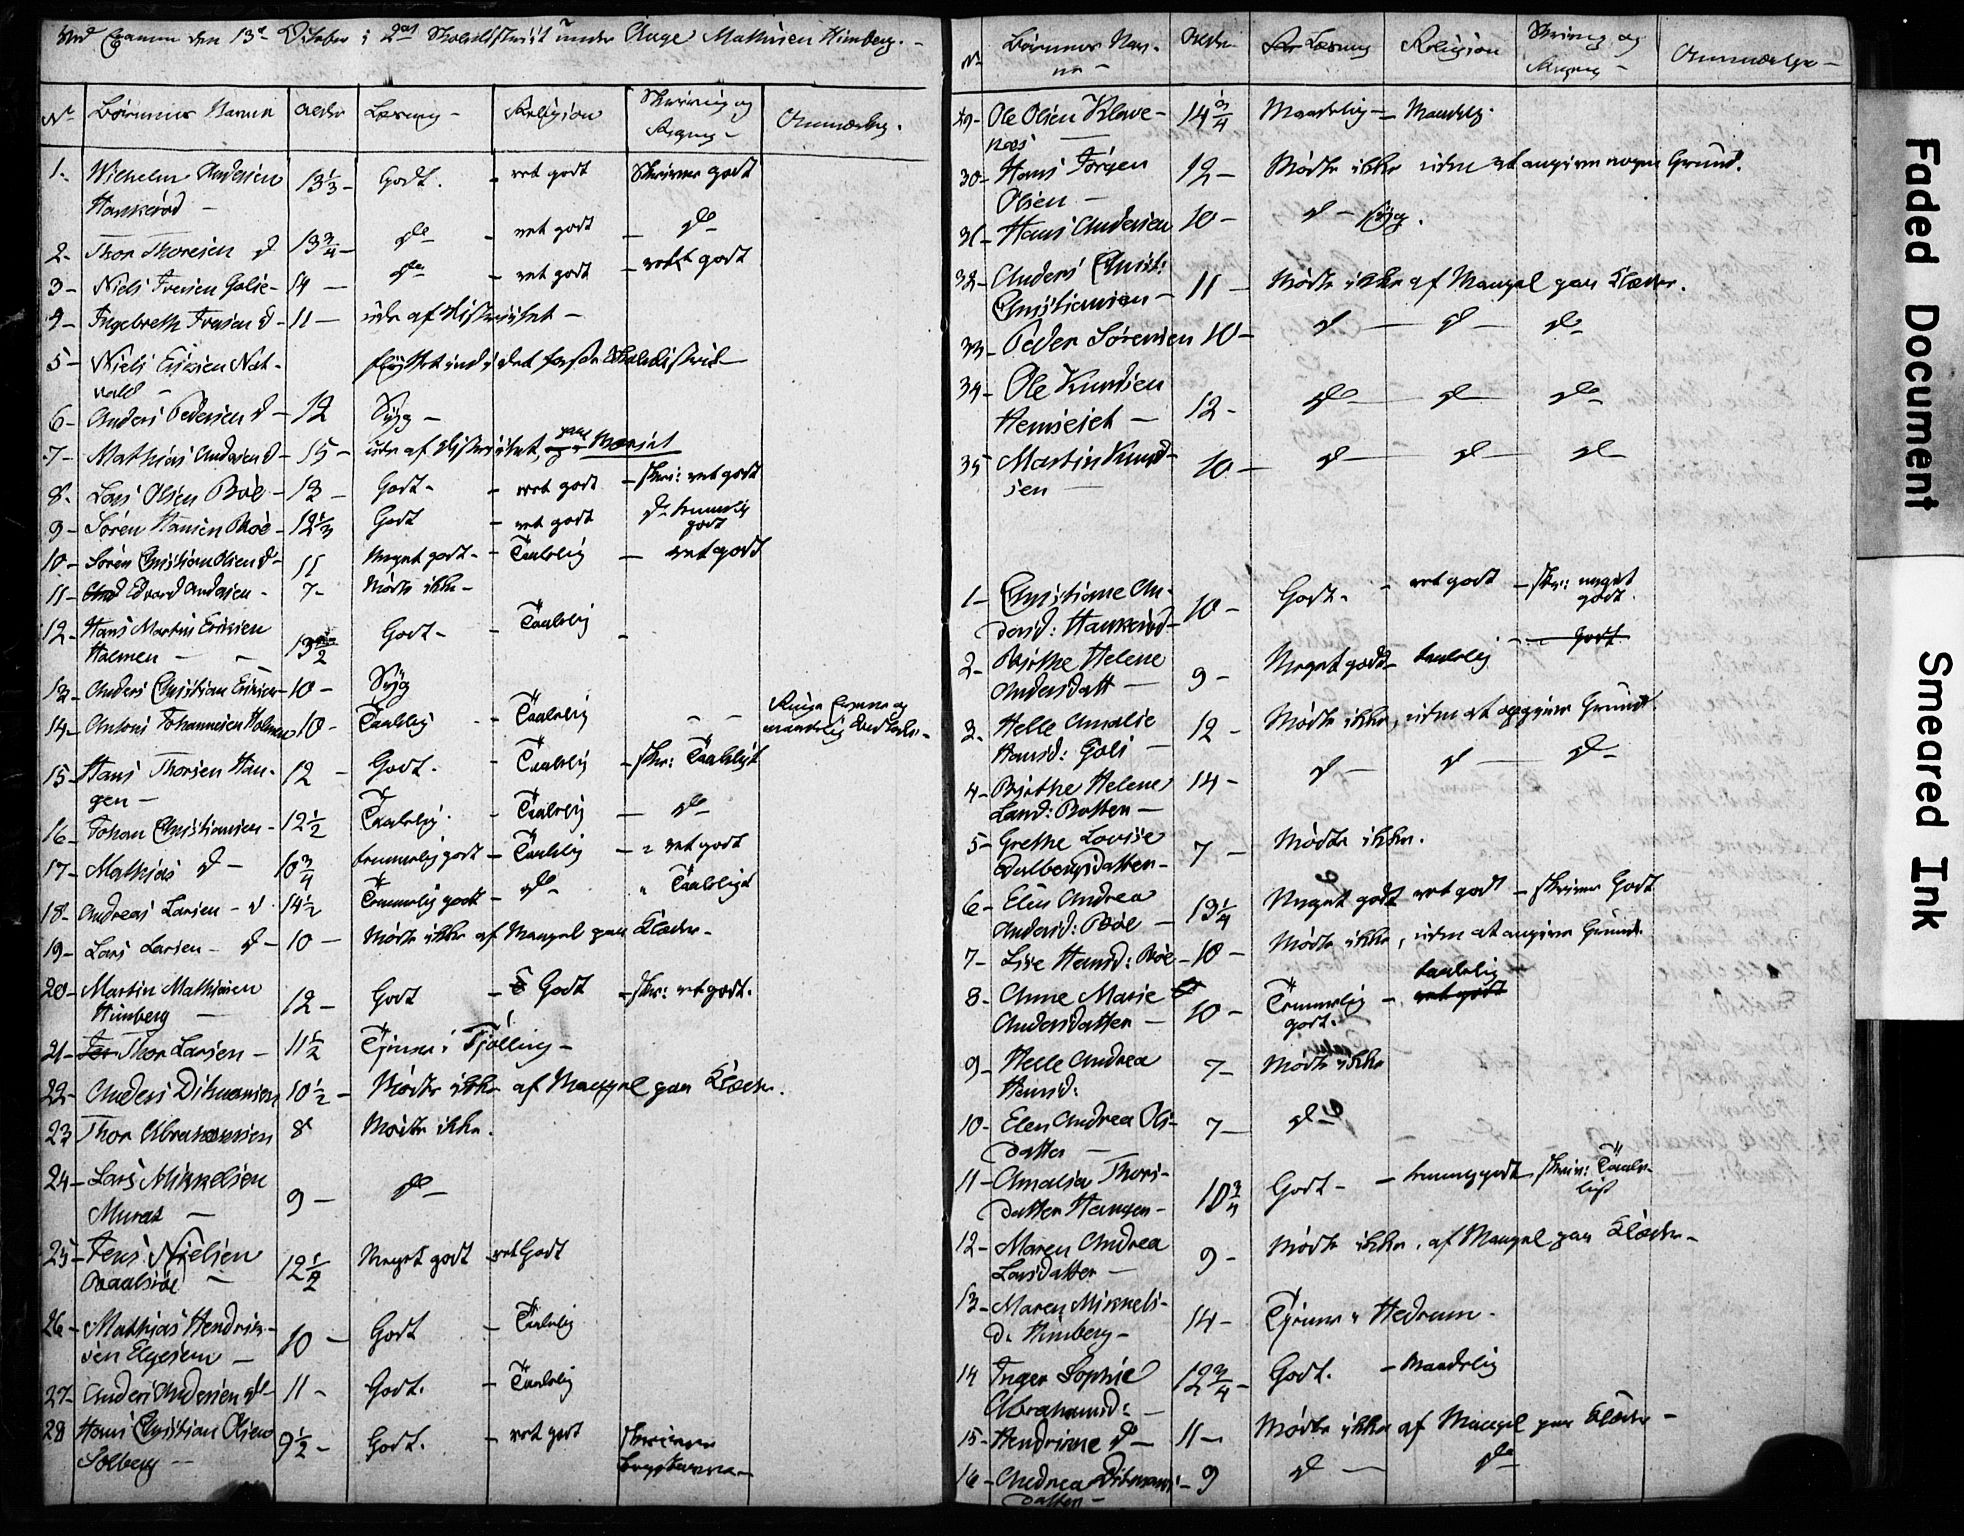 Ved Examen den 13de October i 2det Skoledistrict under Aage Mathisen Himberg.
No Børnenes Navne Alder Læsning Religion Skrivning og Regning Anmærkn.
1. Wilhelm Andersen Hankerød 13 1/3 Godt. ret godt Skriver godt
2. Thor Thoresen d 13 3/4 do ret godt do
3 Niels Iversen Golie 14 do ret godt ret godt
4 Ingebreth Iversen d 11 ude af districtet
5 Niels Ericsen Nat-
vald flyttet ind i det første Skoledistrict
6 Anders Pedersen d 12 Syg
7 Mathias Andersen d 15 ude af districtet,
8. Lars Olsen Bøe 13 Godt ret godt skr: ret godt
9 Søren Hansen Bøe 12 1/3 Godt ret godt do temmelig
godt
10 Søren Christian Olsen d 11 Meget godt Taalelig ret godt
11 Edvard Andersen 7 Mødte ikke
12 Hans Martin Ericsen
Holmen 13 1/2 Godt Taalelig
13 Anders Christian Ericsen 10 Syg
14 Antons Johannesen Holmen 10 Taalelig Taalelig Ringe Evne og
maadelig
15 Hans Thorsen Hau-
gen 12 Godt. Taalelig skr: Taaleligt
16 Johan Christiansen 12 1/2 Taalelig. Taalelig do
17 Mathias d 10 3/4 temmelig godt Taalelig " ret godt
18 Andreas Larsen d 14 1/2 Temmelig godt do " Taaleligt
19 Lars Larsen d 10 Mødte ikke af Mangel paa Klæder
20 Martin Mathisen
Himberg 12 Godt Godt skr: ret godt.
21 Thor Larsen 11 1/2 Tjener i Tjølling
22 Anders Ditmansen 10 1/2 Mødte ikke af Mangel paa Klæder.
23 Thor Abrahamsen 8 Mødte ikke.
24 Lars Mikkelsen
Muraas 9 do
25 Jens Nielsen
12 1/2 Meget godt ret Godt
26 Mathias Hendrik-
sen Elgesem 10 Godt Taalelig
27 Anders Andersen do 11 Godt. Taalelig
28 Hans Christian Olsen
Solberg 9 1/2 Godt. ret godt Skriver
Bogstaverne
No Børnenes Nav-
ne Alder Læsning Religion Skrivning og
Regning Anmærkn
29 Ole Olsen Klave-
næs 14 3/4 Maadelig Maadelig.
30 Hans Jørgen
Olsen 12 Mødte ikke uden at angive nogen Grund.
31 Hans Andersen 10 d syg.
32 Anders Christ:
Christiansen 11 Mødte ikke af Mangel paa Klæder.
33 Peder Sørensen 10 d d do
34 Ole Knudsen
Hemseiet 12 do d do
35 Martin Knud-
sen 10 d d d
1 Christiane An-
dersd: Hankerød 10 Godt. ret godt skr: meget
godt.
2 Birthe Helene
Andersdatt 9 Meget godt taalelig Godt
3 Helle Amalie
Hansd: Goli 12 Mødte ikke, uden at opgive Grund
4 Birthe Helene
Larsd: Botten 14 d d do
5 Grethe Lovise
Dalbergsdatter 7 Mødte ikke.
6 Elen Andrea
Andersd: Bøe 13 1/4 Meget godt ret godt skriver Godt
7 Lise Hansd: Bøe 10 Mødte ikke, uden at angive Grund
8 Anne Marie
Andersdatter 10 Temmelig
godt. taalelig
ret godt
9 Helle Andrea
Hansd: 7 Mødte ikke
10 Elen Andrea Ols-
datter 7 do
11 Amalia Thors-
datter Haugen 10 3/4 Godt temmelig godt skriv: Taale-
ligt
12 Maren Andrea
Larsdatter 9 Mødte ikke, af Mangel paa Klæder
13 Maren Mikkels-
d. Himberg 14 Tjener i Hedrum.
14 Inger Sophie
Abrahamsd: 12 3/4 Godt. Maadelig
15 Hendrine d 11 Mødte ikke af Mangel paa Klæder
16 Andrea Ditmans-
datter 9 d do
Faded Document
Smeared Ink